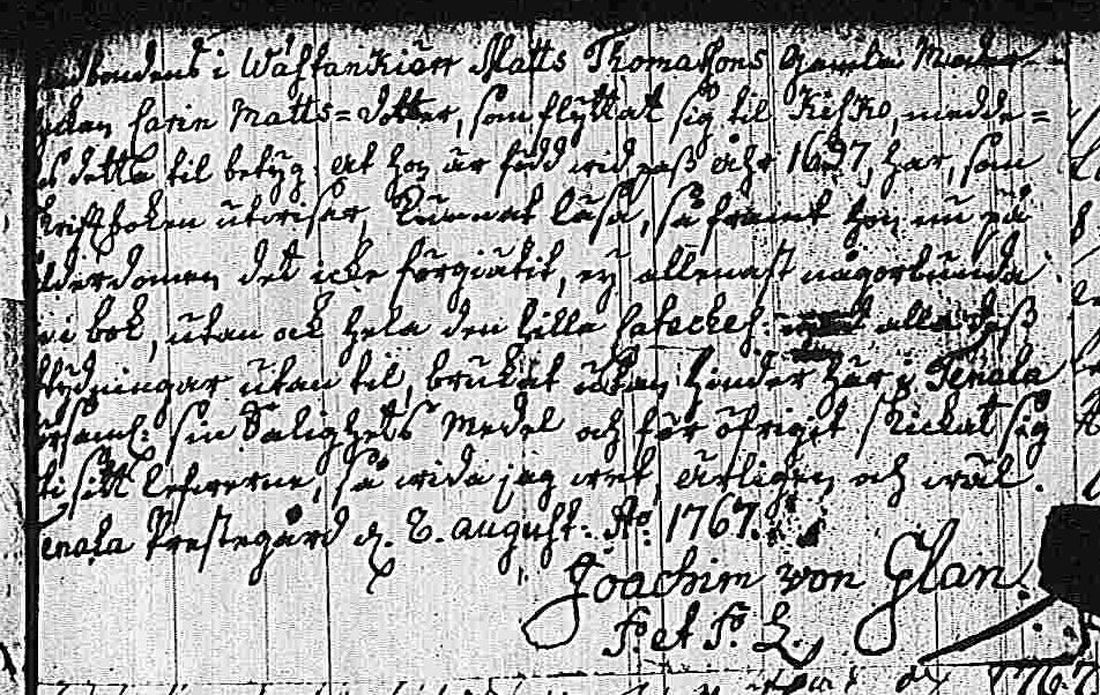 bondens i Wästankiärr Matts Thomassons gamla Moder
Carin Matts=dotter, som flyttat sig til Kisko, medde=
detta til betyg: at hon är född wid paß åhr 1697, har, som
Skriftboken utwiser, kunnat läsa, så framt hon nu på
ålderdomen det icke förgiätit, ey allenast någorlunda
i bok, utan ock hela den lilla Cateches: alla deß
tydningar utan til, brukat utan hinder här i Tenala
församl: sin Salighets Medel och för öfrigit skickat sig
i sitt lefwerne, så wida jag wet, ärligen och wäl.
Tenala Prestegård d. 8. august: Ao 1767.
Joachim von Glan.
P. et P. L.
1767